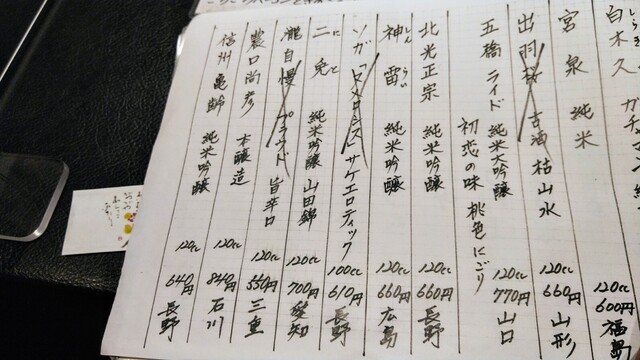 白木久 ガチマゾ純
120cc 600円 福島
宮泉 純米
出羽桜 古酒 枯山水 120cc 660円 山形
五橋 ライド 純米大吟醸 120cc 770円 山口
初恋の味 桃色にごり
北光正宗 純米吟醸 120cc 660円 長野
神雷 純米吟醸 120cc 660円 広島
しん らい
ソガ サケエロティック 100cc 610円 長野
二兎 純米吟醸 山田錦 120cc 700円 愛知
に と
瀧自慢 旨辛口 120cc 550円 三重
農口尚彦 本醸造 120cc 840円 石川
信州亀齢 純米吟醸 120cc 640円 長野